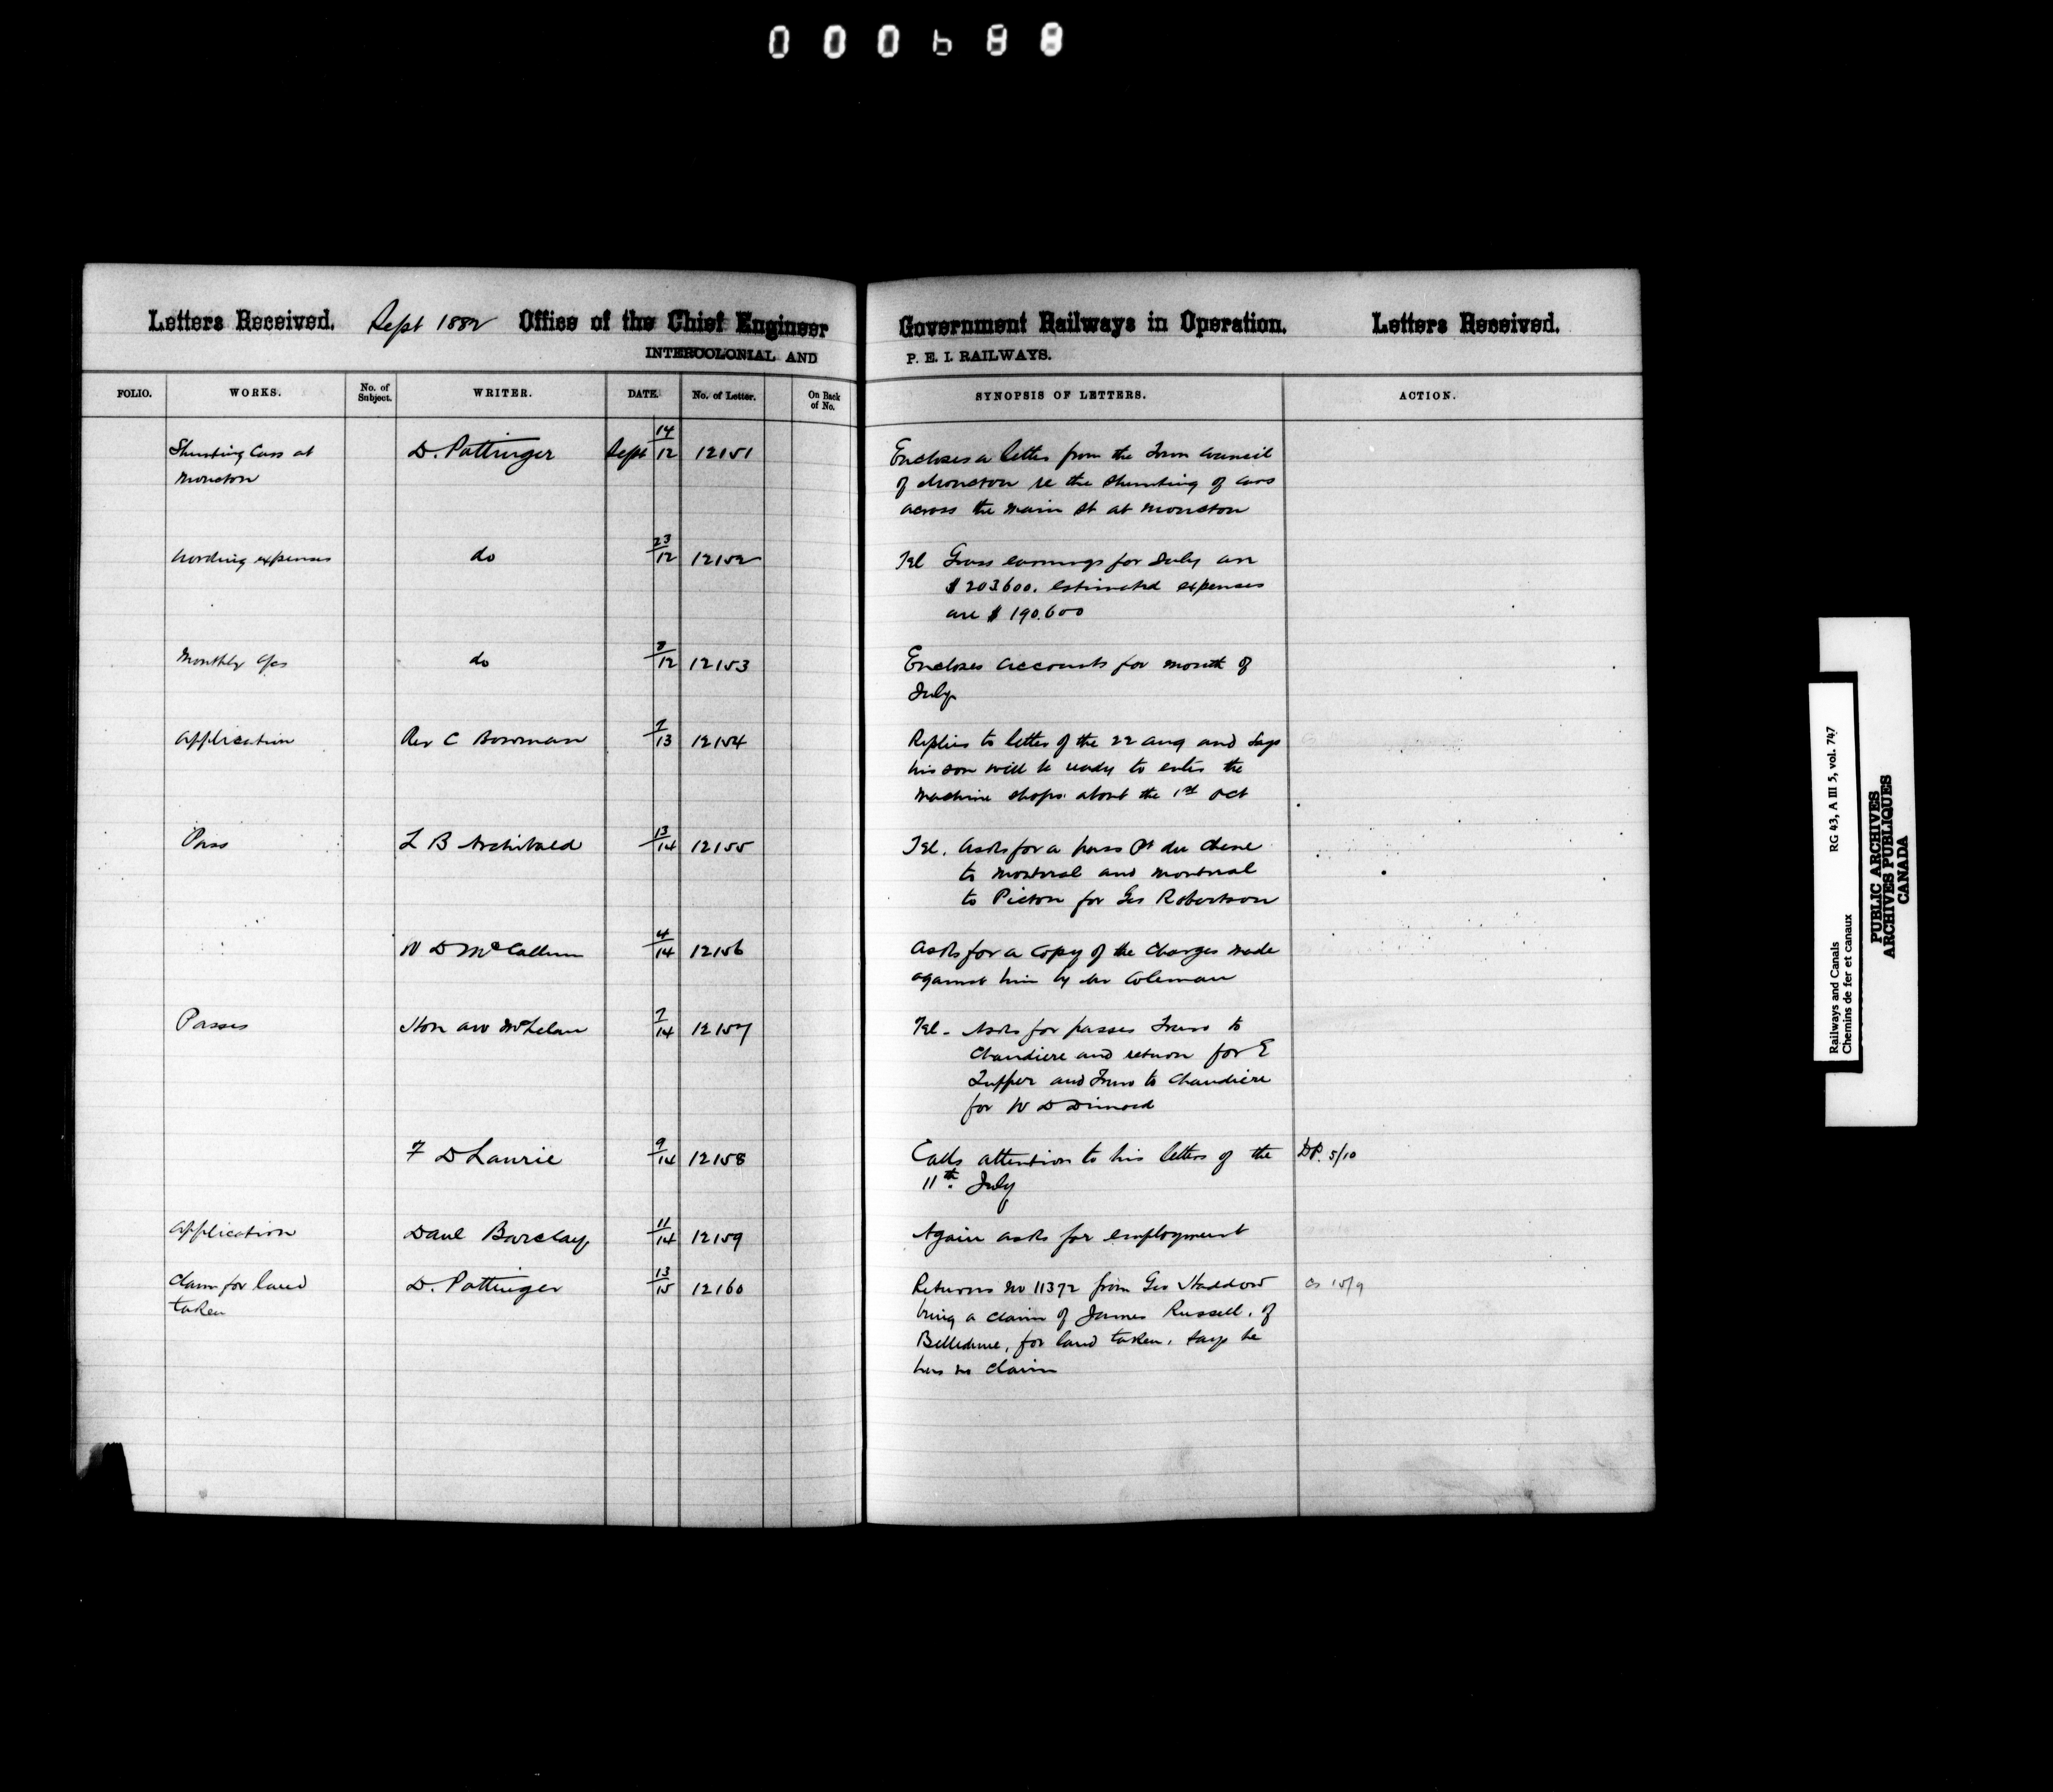 000688
Letters Received. Sept 1882 Office of the Chief Engineer
INTERCOLONIAL AND
Government Railways in Operation. Letters Received.
P. E. I. RAILWAYS.
FOLIO. WORKS. No. of Subject. WRITER. DATE. No. of Letter. On Back of No. SYNOPSIS OF LETTERS. ACTION.
Shunting Cars at D. Pottinger Sept 14/12 12151 Encloses a letter from the Town Council
Moncton of Moncton re the shunting of cars
across the main St at Moncton
Working expenses do 23/12 12152 Tel Gross earnings for July are
$203.600. estimated expenses
are $190.600
Monthly a/cs do 7/12 12153 Encloses accounts for month of
July
Application Rev C Bowman 7/13 12154 Replies to letter of the 22 aug and says
his son will be ready to enter the
machine shops about the 1st Oct
Pass L B Archibald 13/14 12155 Tel. asks for a pass Pt du Chene
to Montreal and Montreal
to Pictou for Geo Robertson
W D McCallum 4/14 12156 asks for a copy of the charges made
against him by Mr Coleman
Passes Hon AW McLelan 7/14 12157 Tel - Asks for passes Truro to
Chaudiere and return for E
Tupper and Truro to Chaudiere
for W D Dimock
F D Laurie 9/14 12158 Calls attention to his letters of the DP. 5/10
11th. July
Application Danl Barclay 11/14 12159 Again asks for employment
Claim for land D. Pottinger 13/15 12160 Returns No 11372 from Geo Haddow Cs 15/9
taken being a claim of James Russell, of
Belledune, for land taken. says he
has no claim
RG 43, A III 5, vol. 747
Railways and Canals
Chemins de fer et canaux
PUBLIC ARCHIVES
ARCHIVES PUBLIQUES
CANADA